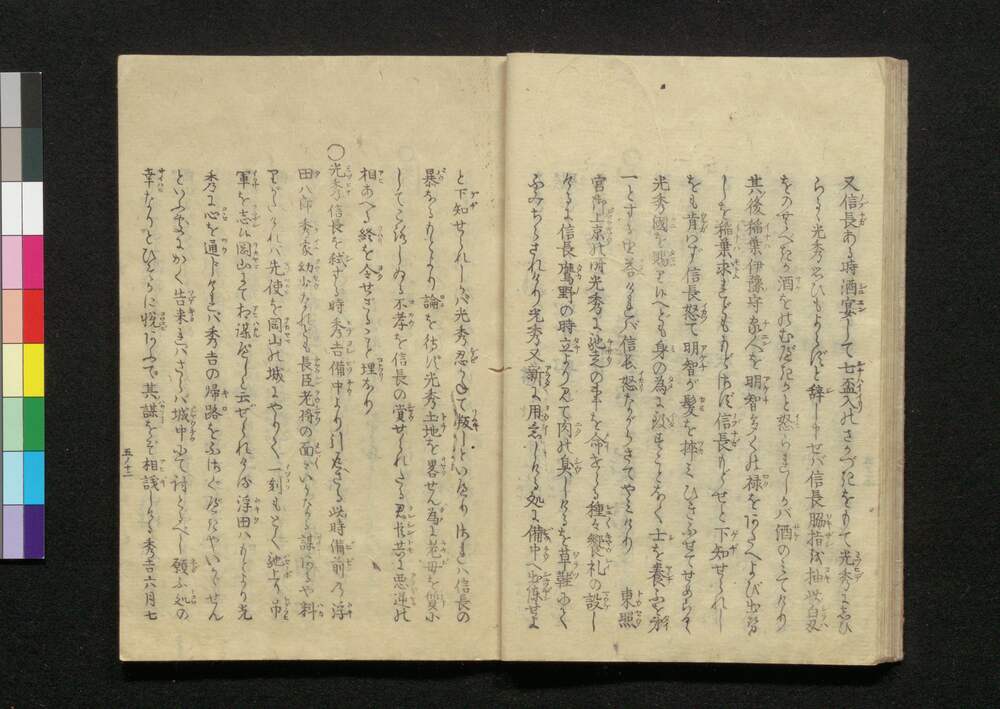 又信長ある時酒宴して七盃入のさかづきをもて光秀にしひ
らるゝ光秀思ひもよらずと辞し申せバ信長脇指を抽此白刃
をのむべきか酒をのむべきかと怒られしかバ酒のミてけり
其後稲葉伊豫守家人を明智多くの禄をあたへよび出せ
しを稲葉求れどももどさず信長もどせと下知せられし
をも肯はず信長怒て明智が髪を捽ミひきふせてせめらる
光秀國を賜り候へども身の為にすることなく士を養ふを第
一とする由答けれバ信長怒ながらさてやミけり 東照
宮御上京の時光秀に馳走の事を命ぜらる種々饗礼の設し
けるに信長鷹野の時立より見て肉の臭しけるを草鞋にて
ふみちらされけり光秀又新に用意しける処に備中へ出陣せよ
と下知せられしかバ光秀忍かねて叛しといへり
暴なるもとより論を待バ光秀土地を畧せん為に老母を質に
してころしゝの不孝を信長の賞せられたる君臣共に悪逆の
相あへる終を令せざること理なり
○光秀信長を弑する時秀吉備中より引かへさる此時備前の浮
田八郎秀家幼少なれども長臣老将の面々いかなる謀あらんや料
がたけれバ先使を岡山の城にやりて一刻もとく馳上り
軍を志候岡山にてね謀べしと云ぜられける浮田ハもとより光
秀に心を通ハしけれバ秀吉の帰路をふさぐべきやいかゞせん
といふ處にかく告来けれバさらバ城中にて討とるべし願ふ処の
幸なりとひそかに悦あふて其謀をぞ相議しける秀吉六月七
五ノ十二